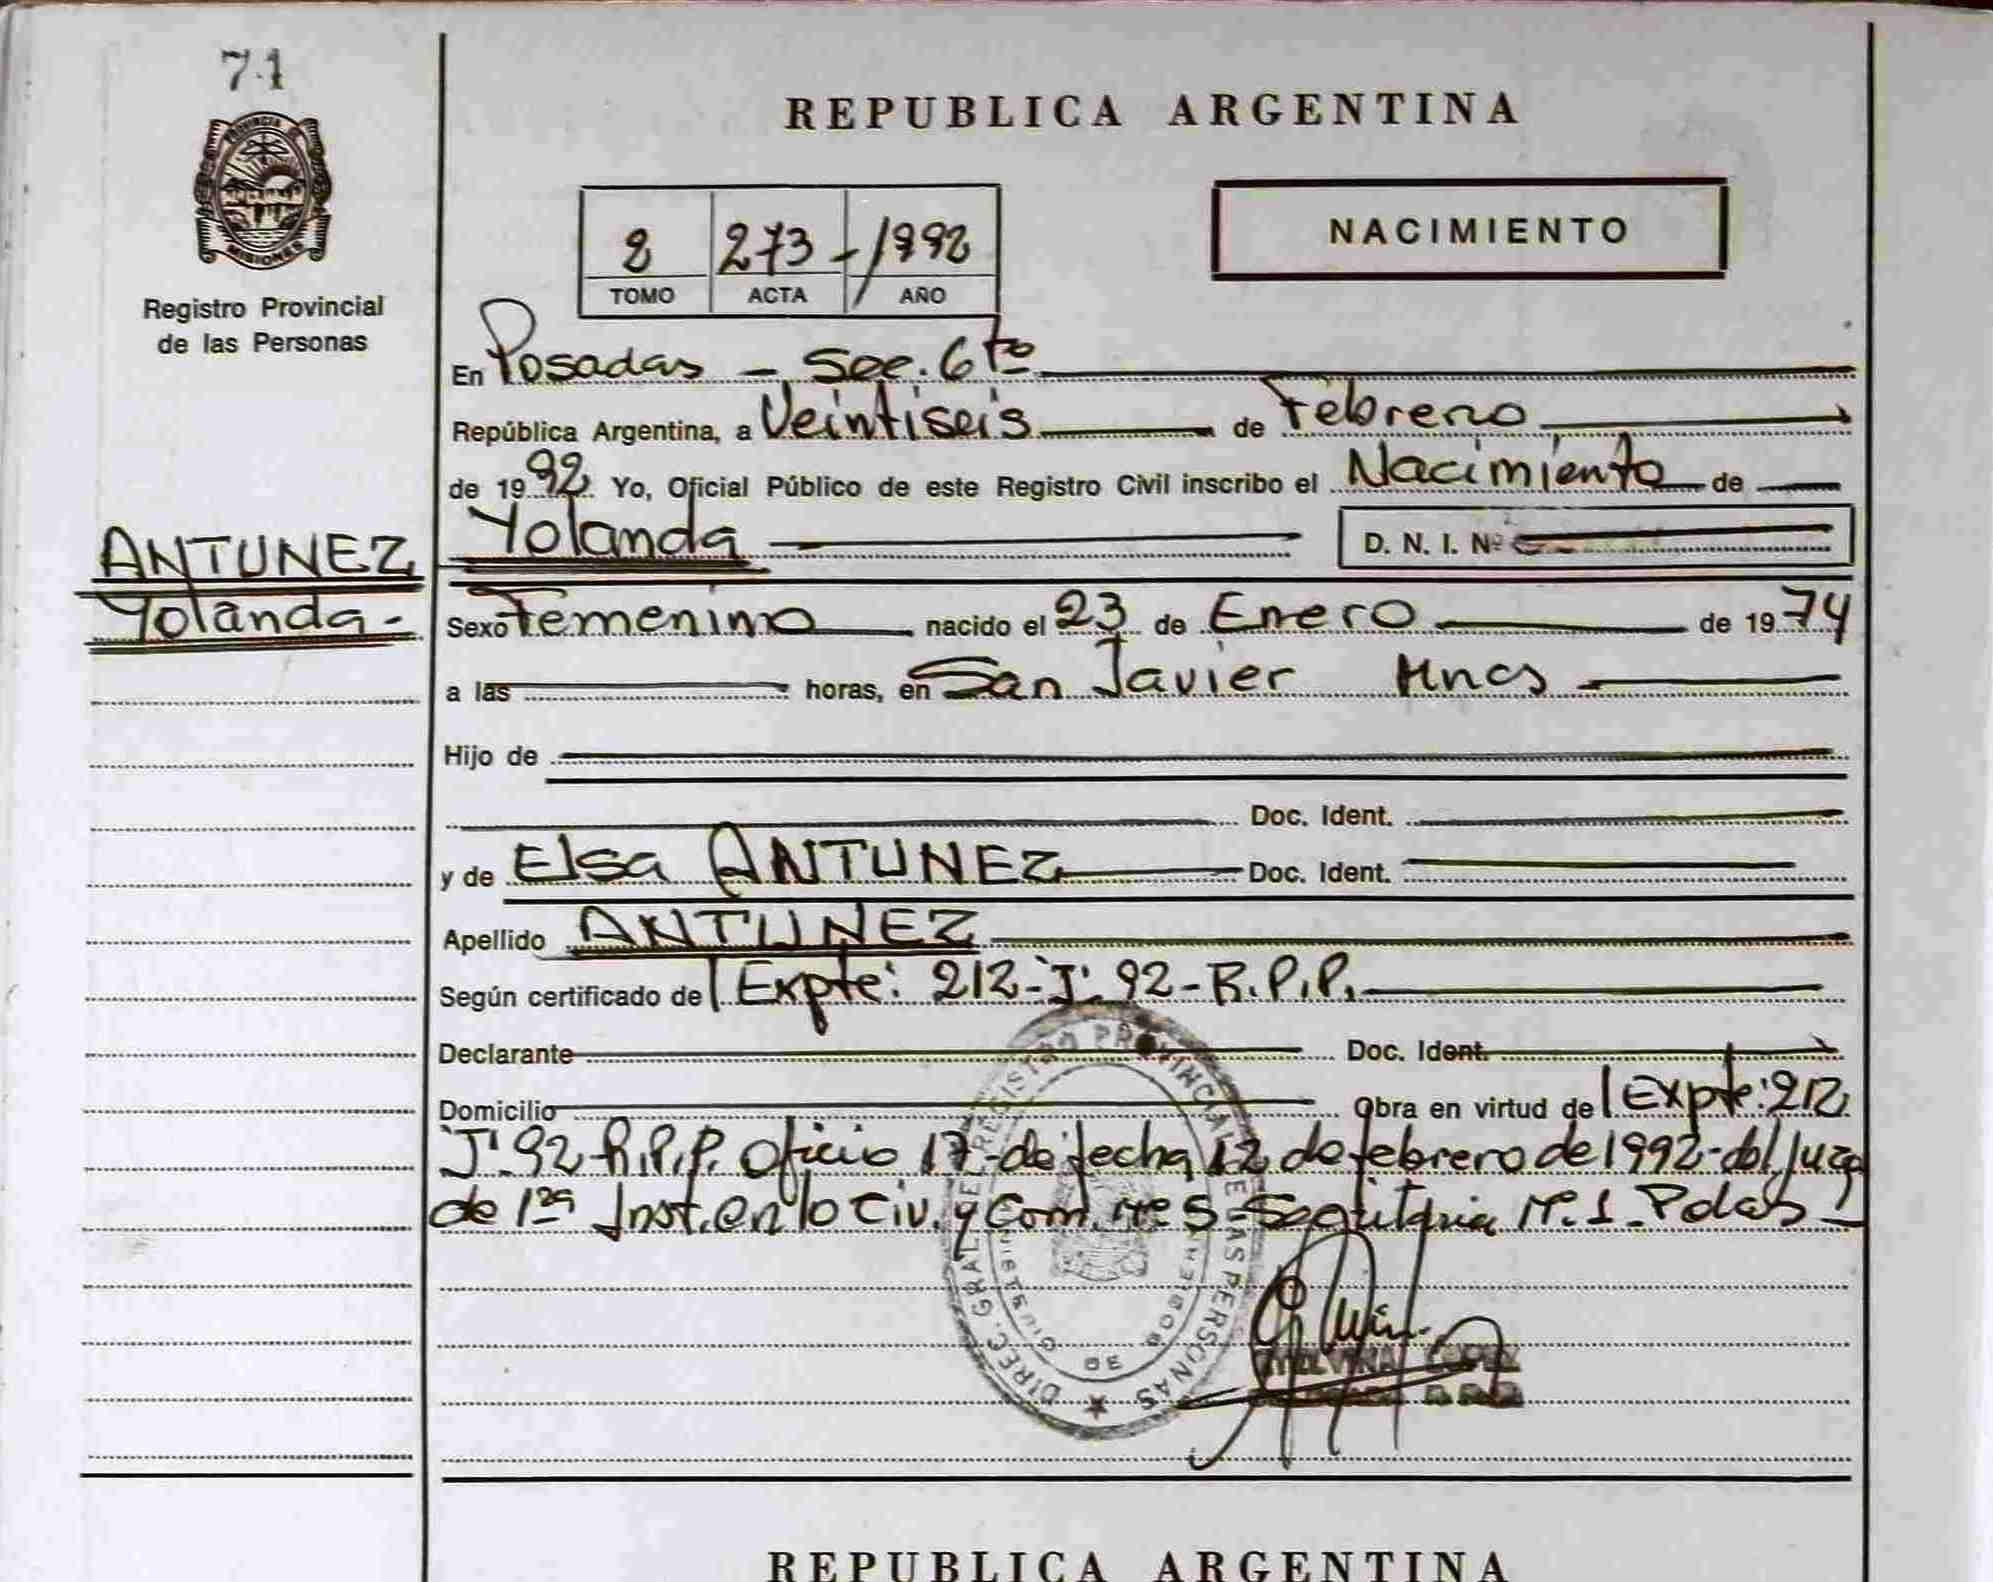 71
PROVINCIA DE
MISIONES
Registro Provincial
de las Personas
ANTUNEZ
Yolanda-
REPUBLICA ARGENTINA
NACIMIENTO
2 273 - 1992
TOMO ACTA AÑO
En Posadas - Sec. 6ta
República Argentina, a Veintiseis de Febrero
de 1992 Yo, Oficial Público de este Registro Civil inscribo el Nacimiento de
Yolanda D. N. I. Nº
Sexo Femenino nacido el 23 de Enero de 1974
a las horas, en San Javier Mnes
Hijo de
Doc. Ident.
y de Elsa ANTUNEZ Doc. Ident.
Apellido ANTUNEZ
Según certificado de Expte: 212-"J". 92-R.P.P.
Declarante Doc. Ident.
Domicilio Obra en virtud de Expte: 212
"J". 92-R.P.P. Oficio 17-de fecha 12 de febrero de 1992-del Juzg
de 1ra Inst. en lo Civ. y Com. nº 5 Nº. 1. Pdas-
DIREC. GRAL. DE REGISTRO PROVINCIAL DE LAS PERSONAS
MINISTERIO DE GOBIERNO
REPUBLICA ARGENTINA